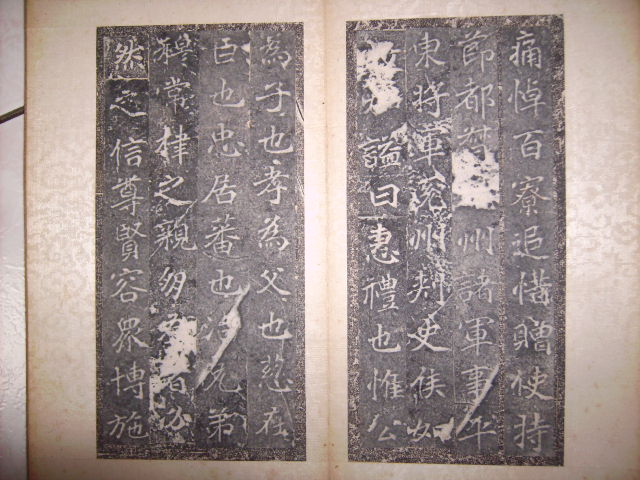 痛悼百寮追惜贈使持
節都督州諸軍事平
東將軍兗州刺史侯如
謚曰惠禮也惟公
為子也孝為父也慈在
臣也忠居蕃也治兄弟
穆常棣之親朋友必
然之信尊賢容眾博施